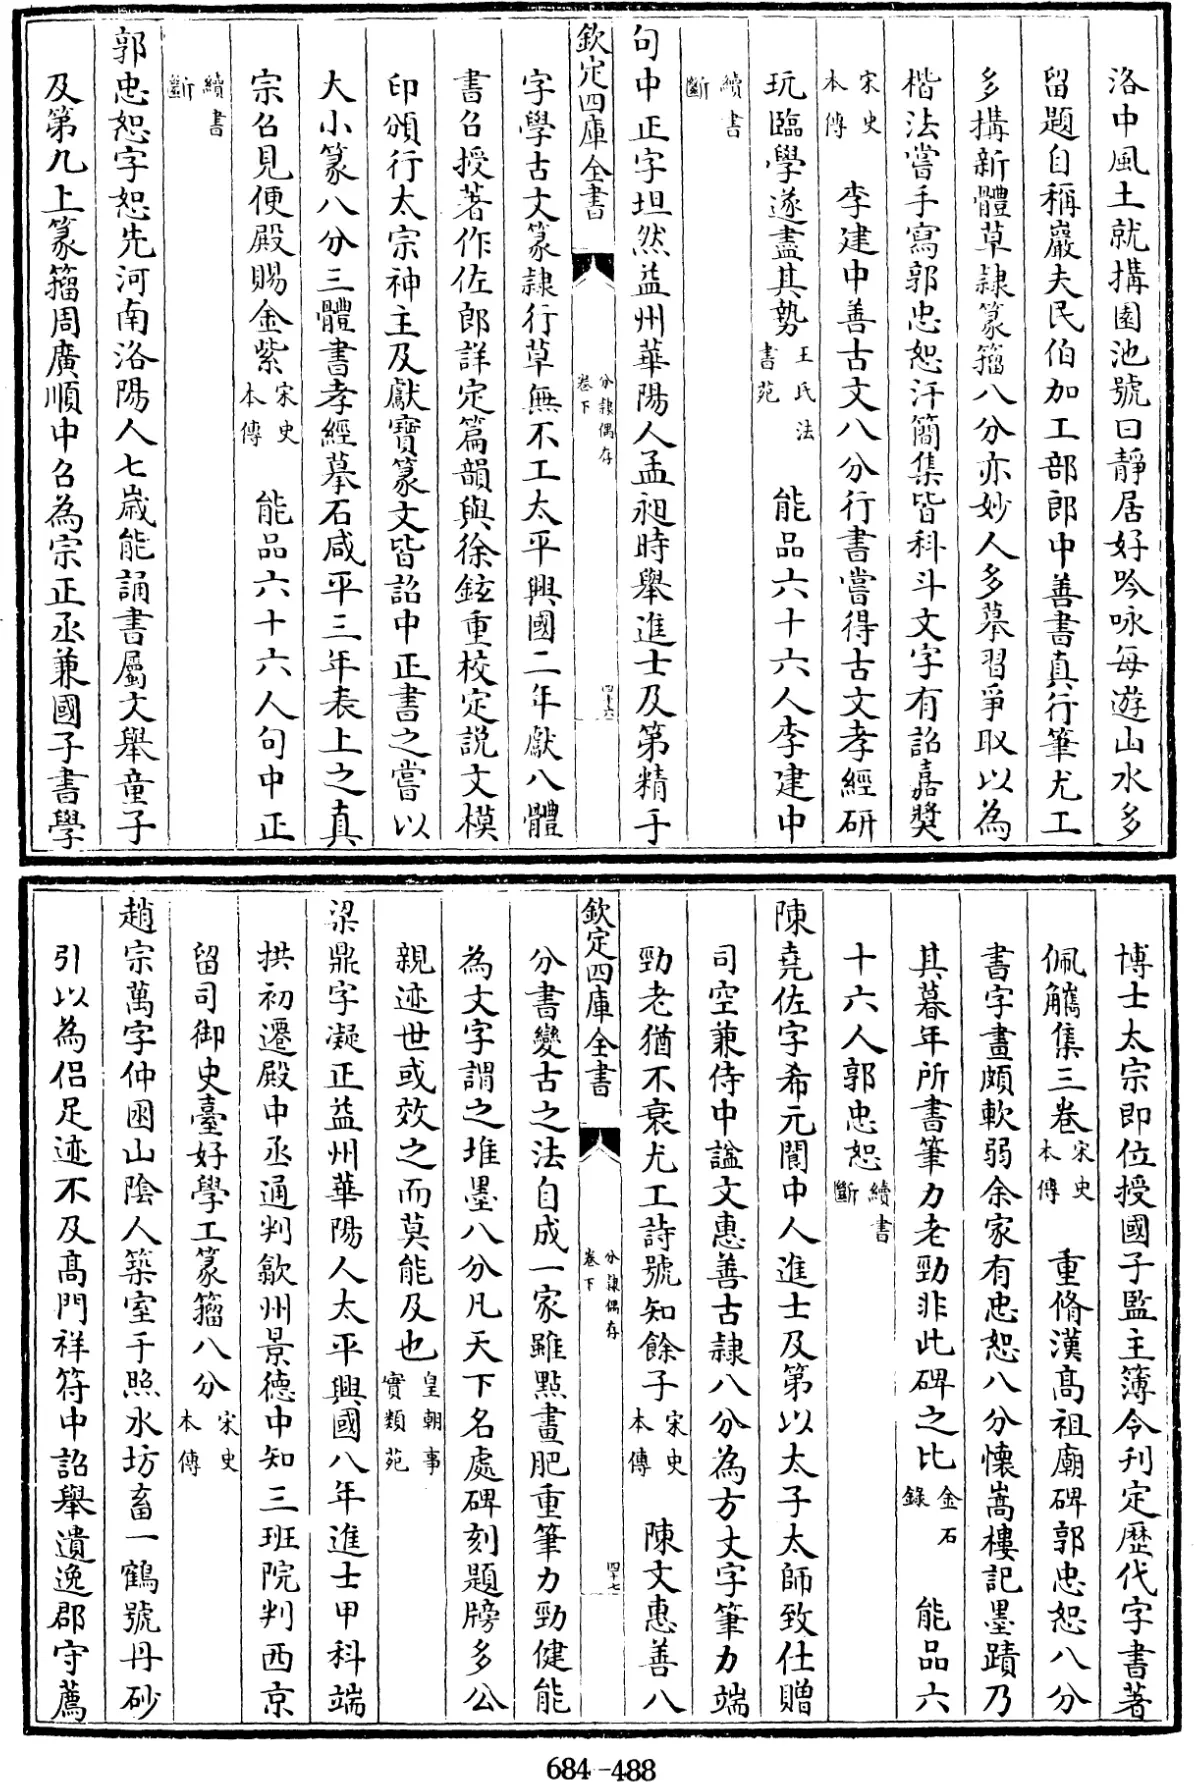 洛中風土就搆園池號曰靜居好吟咏每遊山水多
留題自稱巖夫民伯加工部郎中善書真行筆尤工
多搆新體草隸篆籀八分亦妙人多摹習爭取以為
楷法嘗手寫郭忠恕汗簡集皆科斗文字有詔嘉奬
宋史本傳 李建中善古文八分行書嘗得古文孝經研
玩臨學遂盡其勢王氏法書苑 能品六十六人李建中
續書斷
句中正字坦然益州華陽人孟昶時舉進士及第精于
欽定四庫全書 分隸偶存卷下 四十六
字學古文篆隸行草無不工太平興國二年獻八體
書召授著作佐郎詳定篇韻與徐鉉重校定説文模
印頒行太宗神主及獻寶篆文皆詔中正書之嘗以
大小篆八分三體書孝經摹石咸平三年表上之真
宗召見便殿賜金紫宋史本傳 能品六十六人句中正
續書斷
郭忠恕字恕先河南洛陽人七歲能誦書屬文舉童子
及第九上篆籀周廣順中召為宗正丞兼國子書學
博士太宗即位授國子監主簿令刋定歴代字書著
佩觿集三卷宋史本傳 重脩漢髙祖廟碑郭忠恕八分
書字畫頗軟弱余家有忠恕八分懷嵩樓記墨蹟乃
其暮年所書筆力老勁非此碑之比金石錄 能品六
十六人郭忠恕續書斷
陳堯佐字希元閬中人進士及第以太子太師致仕贈
司空兼侍中諡文惠善古隸八分為方丈字筆力端
勁老猶不衰尤工詩號知餘子宋史本傳 陳文惠善八
欽定四庫全書 分隸偶存卷下 四十七
分書變古之法自成一家雖㸃畫肥重筆力勁健能
為文字謂之堆墨八分凡天下名處碑刻題牓多公
親迹世或效之而莫能及也皇朝事實類苑
梁鼎字凝正益州華陽人太平興國八年進士甲科端
拱初遷殿中丞通判歙州景德中知三班院判西京
留司御史臺好學工篆籀八分宋史本傳
趙宗萬字仲困山陰人築室于照水坊畜一鶴號丹砂
引以為侶足迹不及髙門祥符中詔舉遺逸郡守薦
684-488